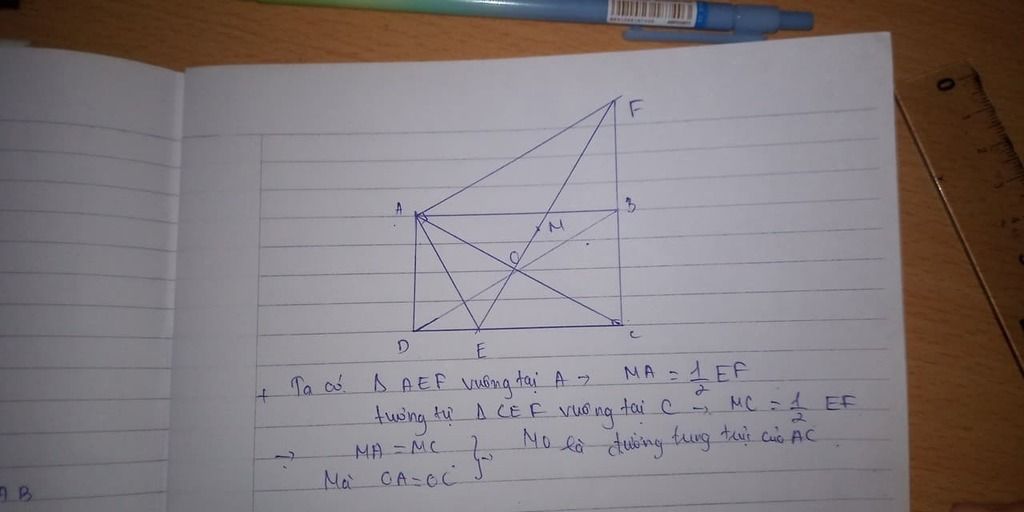 F
A
B
M
O
D
E
C
+ Ta có: Δ AEF vuông tại A → MA = 1/2 EF
tương tự Δ CEF vuông tại C → MC = 1/2 EF
→ MA = MC
Mà OA = OC } → MO là đường trung trực của AC
AB
0